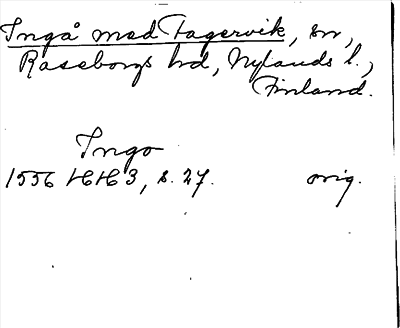 Ingå med Fagervik, sn,
Raseborgs hd, Nylands l.,
Finland.
Ingo
1556 HH 3, s. 27. orig.